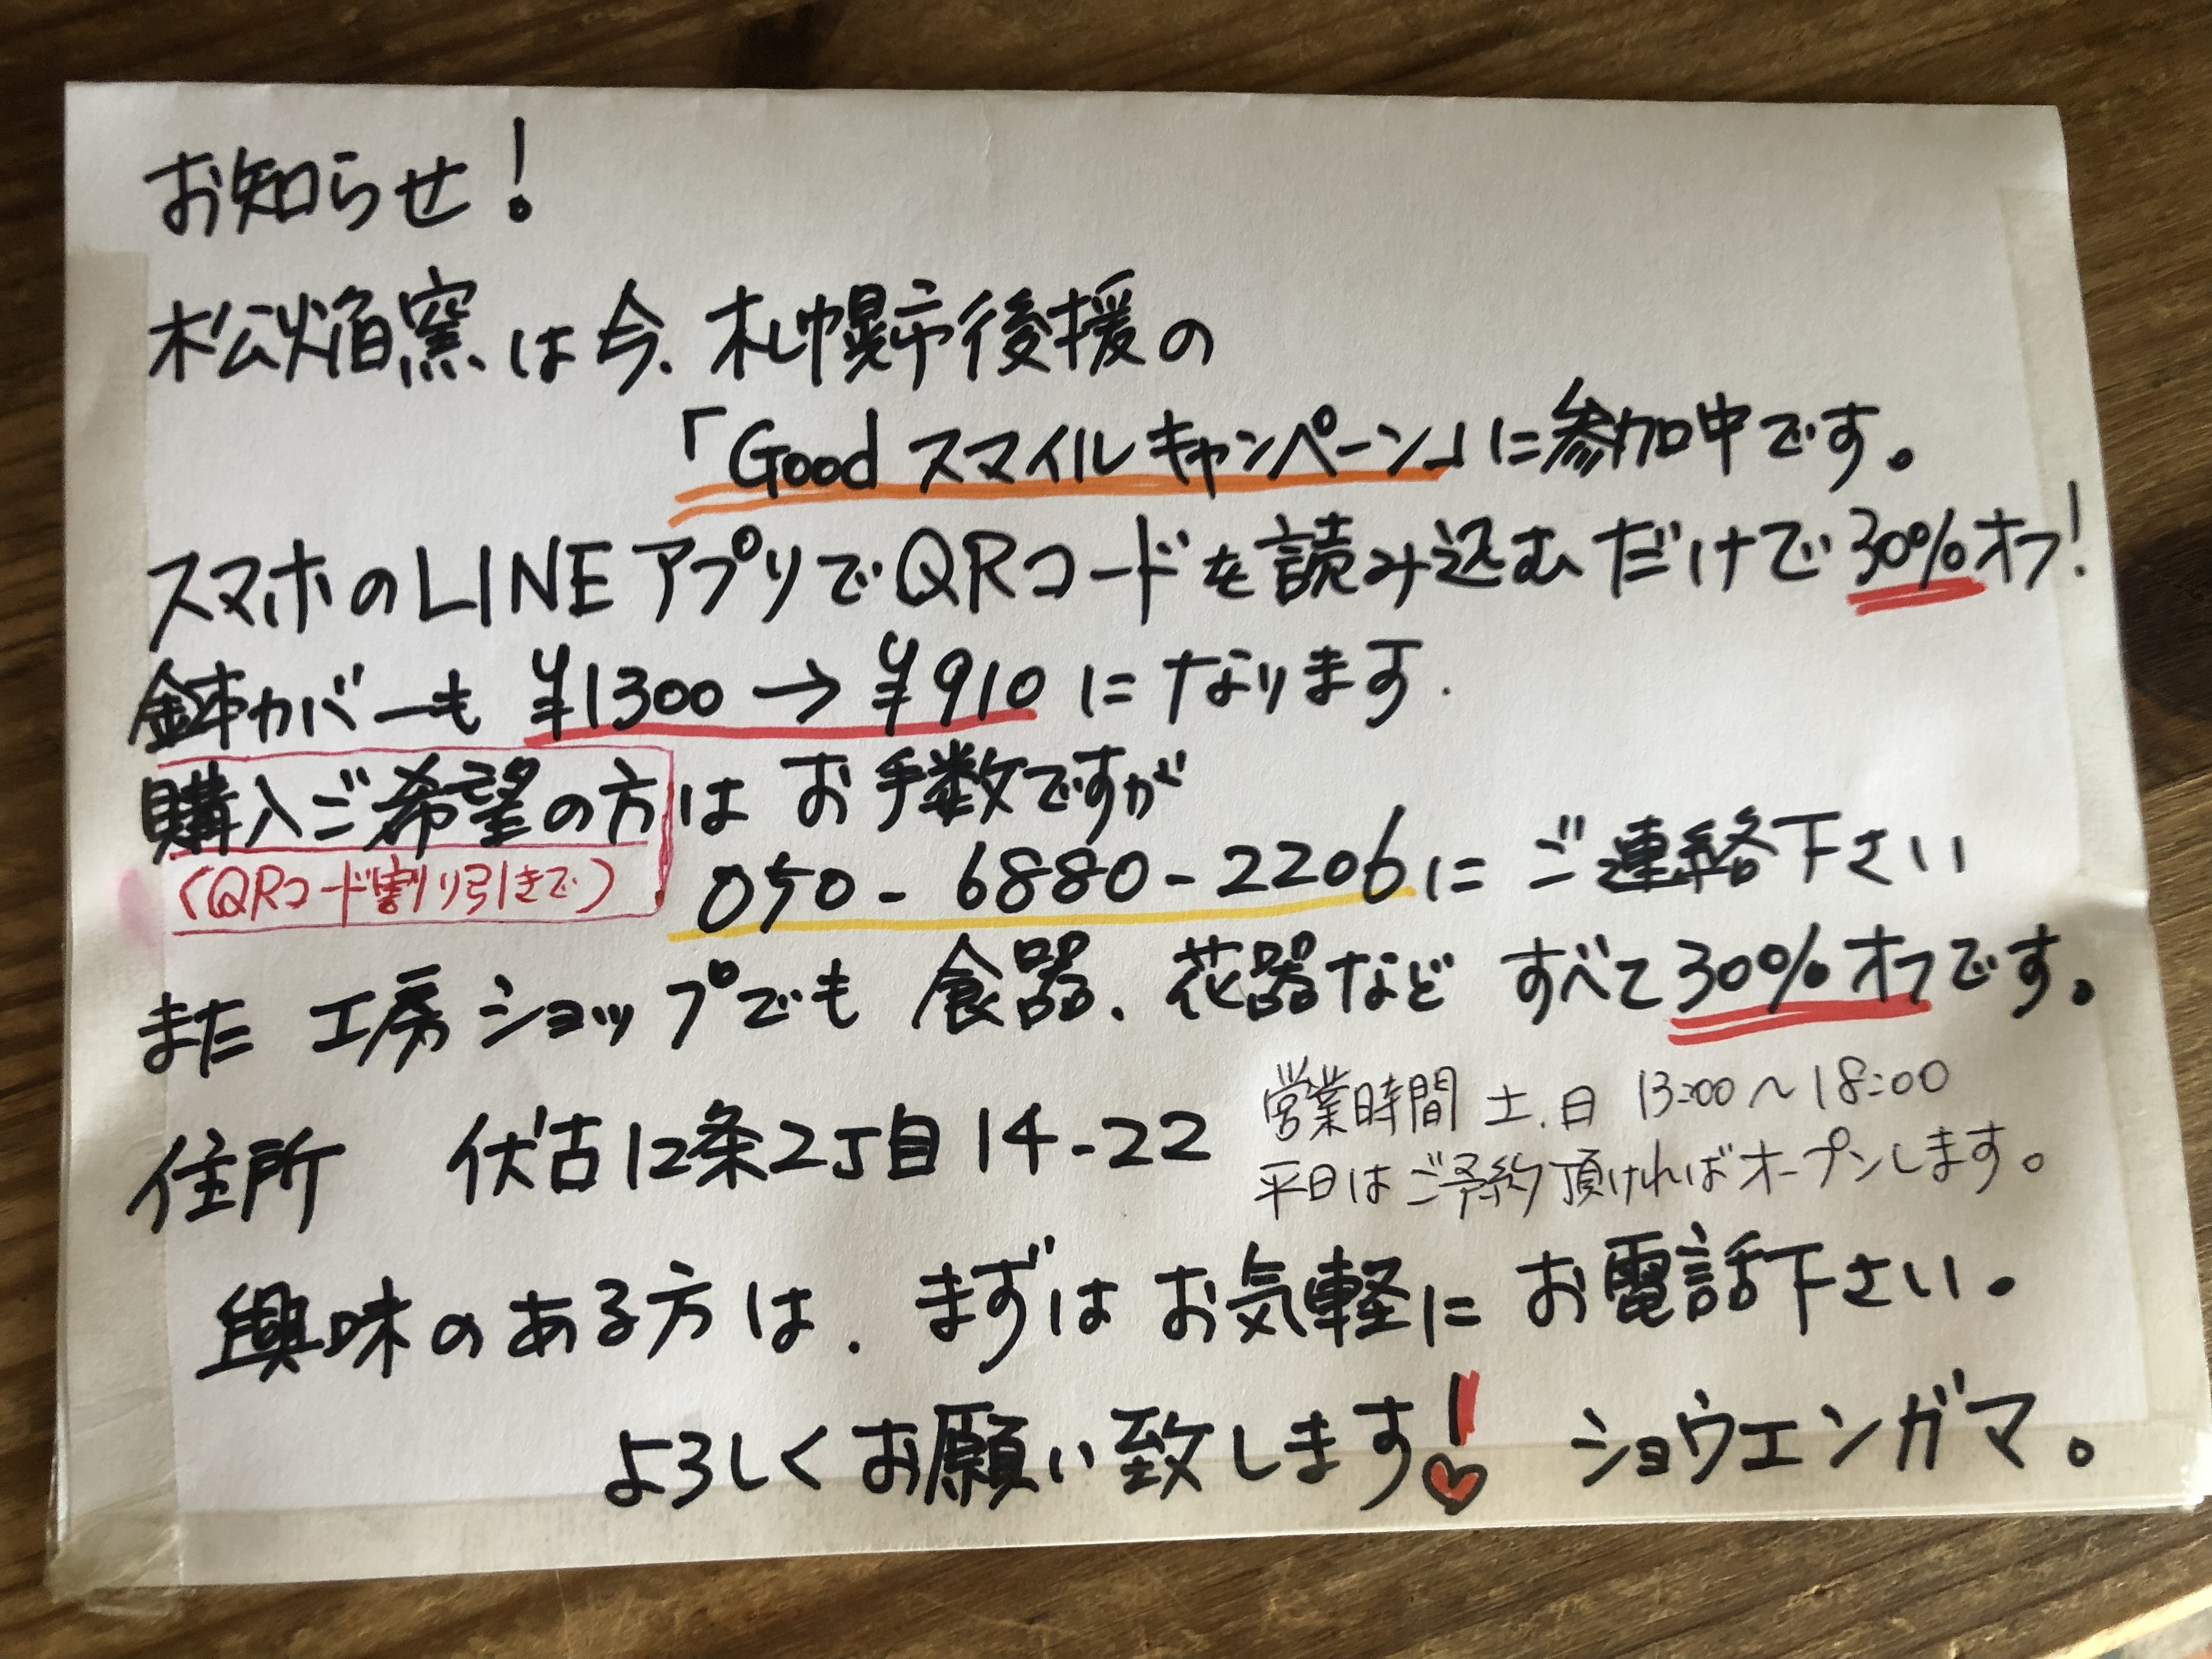 お知らせ!
松焔窯は今、札幌市後援の
「Good スマイルキャンペーン」に参加中です。
スマホのLINEアプリでQRコードを読み込むだけで30%オフ!
鉢カバーも ¥1300→¥910になります.
購入ご希望の方は お手数ですが
(QRコード割り引きで)
050-6880-2206に ご連絡下さい
また 工房ショップでも 食器、花器など すべて30%オフです。
営業時間 土.日 13:00〜18:00
住所 伏古12条2丁目14-22
平日はご予約頂ければオープンします。
興味のある方は、まずはお気軽にお電話下さい。
よろしくお願い致します! ショウエンガマ。